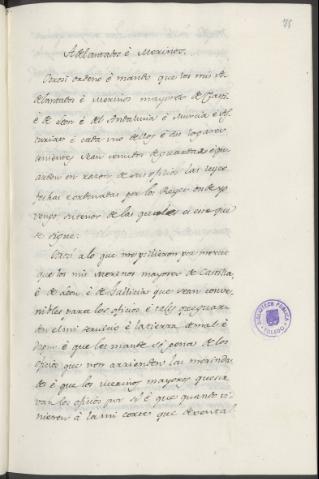 Adelantados è Merinos.
Otrosi ordeno è mando que los mis A-
delantados è Merinos mayores de Casti
è de Leon è del Andalucia è Murcia è As-
turias è cada uno de los è sus logares
tenientes sean tenudos de guardar è que
arden en razon de sus oficios las leyes
fechas è ordenadas por los Reyes onde yo
vengo su tenor de las quales es este que
se sigue:
Otrosi a lo que nos pidieron por merced
que los mis Merinos mayores de Castilla,
è de Leon, è de Gallicia que sean conve-
nibles para los oficios è tales que guar-
den el mi servicio è la tierra de mal è
daño è que les mande so pena de los
oficios que non arrienden las merinda-
des è que los merinos mayores que sir-
van los oficios por sí è que quando vi-
nieren à la mi corte que
BIBLIOTECA PÚBLICA
TOLEDO